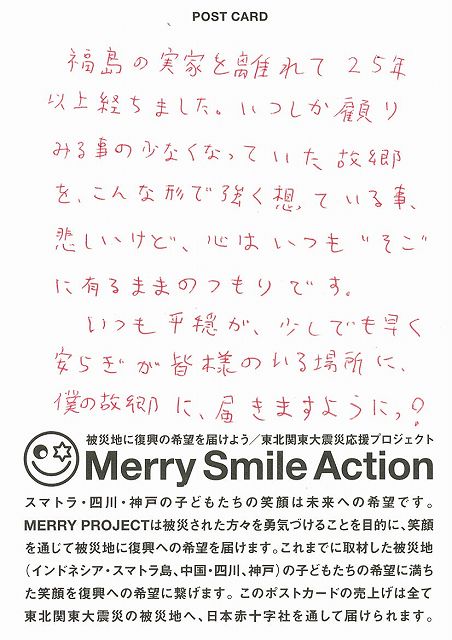 POST CARD
福島の実家を離れて25年
以上経ちました。いつしか顧り
みる事の少なくなっていた故郷
を、こんな形で強く想っている事、
悲しいけど、心はいつも"そこ"
に有るままのつもりです。
いつも平穏が、少しでも早く
安らぎが皆様のいる場所に、
僕の故郷に、届きますようにっ!
被災地に復興の希望を届けよう／東北関東大震災応援プロジェクト
Merry Smile Action
スマトラ・四川・神戸の子どもたちの笑顔は未来への希望です。
MERRY PROJECTは被災された方々を勇気づけることを目的に、笑顔
を通じて被災地に復興への希望を届けます。これまでに取材した被災地
（インドネシア・スマトラ島、中国・四川、神戸）の子どもたちの希望に満ち
た笑顔を復興への希望に繋げます。このポストカードの売上げは全て
東北関東大震災の被災地へ、日本赤十字社を通して届けられます。